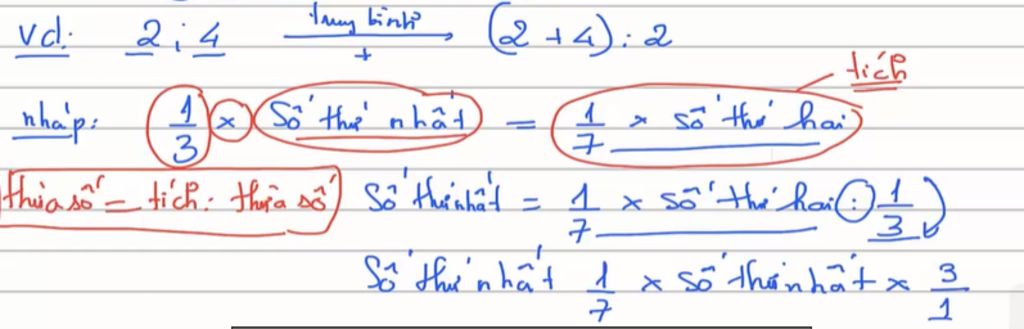 vd: 2; 4 trung bình + (2 + 4) : 2
tích
nháp: 1/3 × Số thứ nhất = 1/7 × số thứ hai
thừa số = tích : thừa số Số thứ nhất = 1/7 × số thứ hai : 1/3
Số thứ nhất 1/7 × số thứ nhất × 3/1